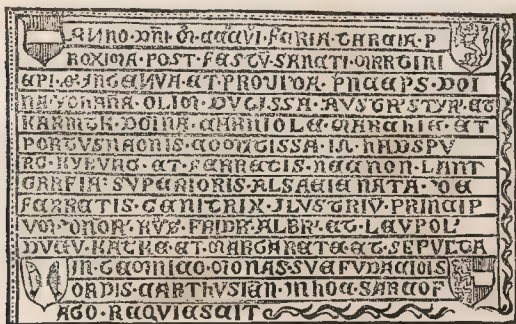 ANNO·DNI·M· FERIA·TERCIA·P
ROXIMA·POST·FESTV·SANCTI·MARTINI
EPI· INGENVA·ET·PROVIDA·PNCEPS·DOI
NA·IOHANA·OLIM·DVCISSA·AVSTR·STYR·ET
KARNTH·DOINA·CARNIOLE·MARCHIE·ET
PORTVSNAONIS·COMTISSA·IN·HADSPV
RG·KYBVRG·ET·FERRETIS·NECNON·LANT
GRAFIA·SVPERIORIS·ALSACIE·NATA·DE
FERRETIS·GENITRIX·ILVSTRIV·PRINCIP
VM·DNOR·RVD·FRIDR·ALBR·ET·LEVPOL'
DVCV·KATHE·ET·MARGARETE·ET·SEPVLTA
IN·GEMNICO·MONAS·SVE·FVDACIOIS
ORDIS·CARTHVSIEN·IN·HOC·SARCOF
AGO·REQVIESCIT